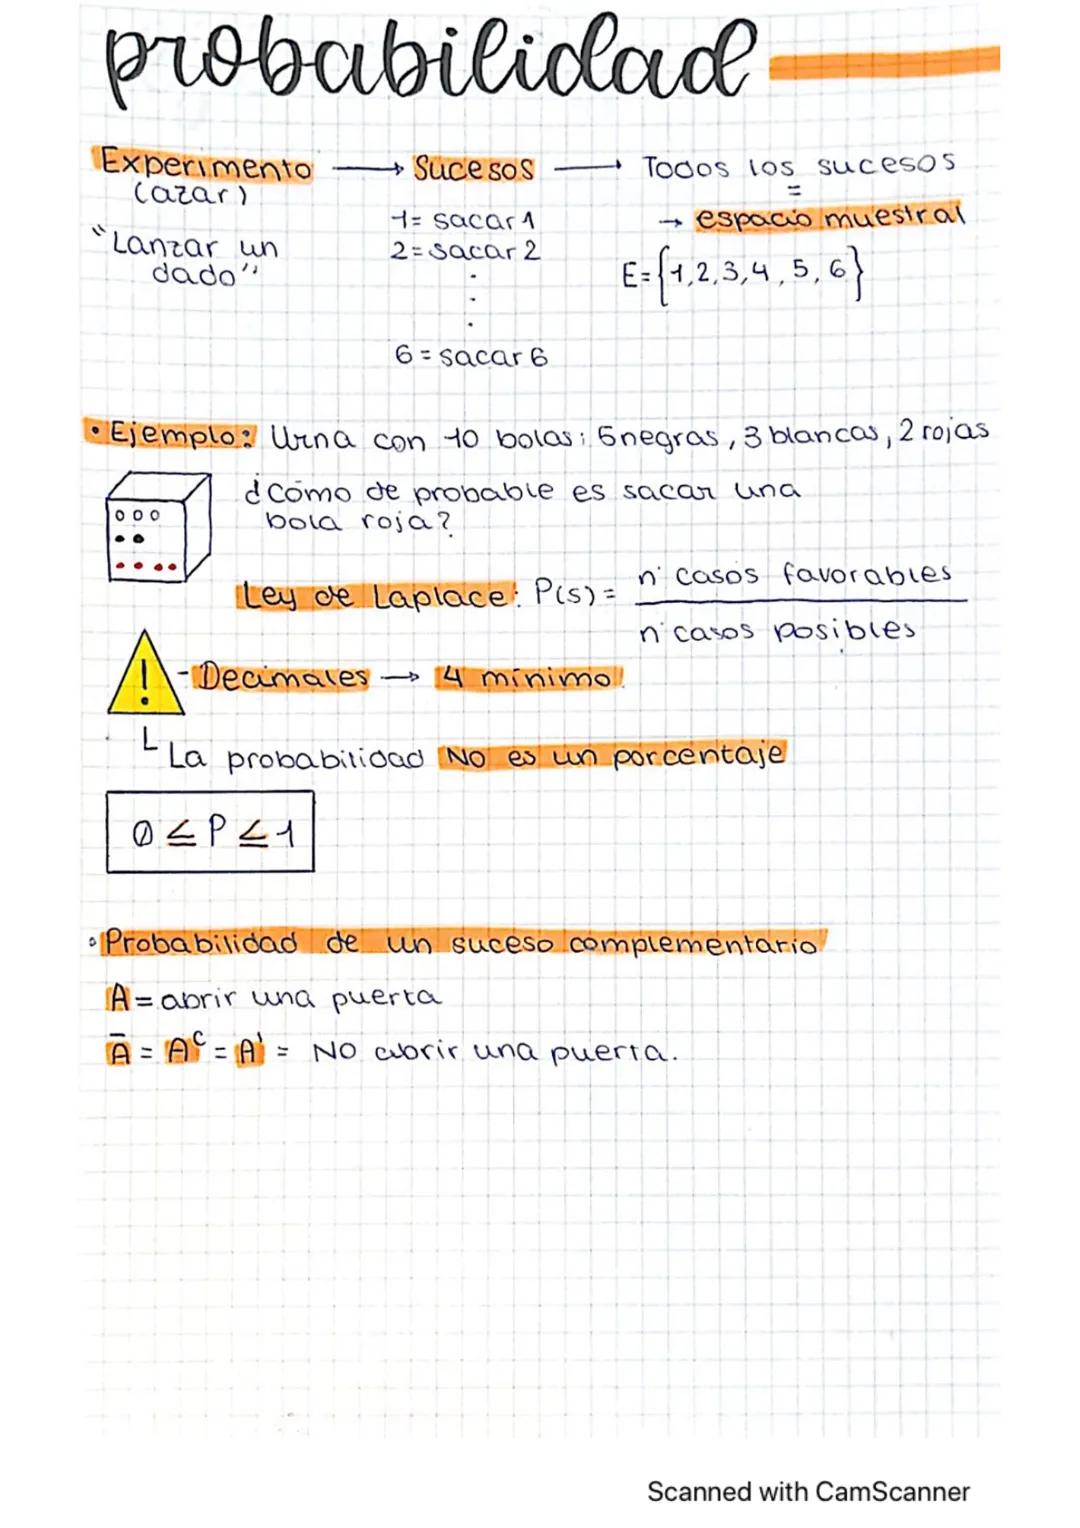 probabilidad
Experimento → Sucesos → Todos los sucesos
(azar)
=
1 = sacar 1 → espacio muestral
"Lanzar un dado"
2 = sacar 2
E = {1,2,3,4,5,6}
.
.
.
6 = sacar 6
• Ejemplo: Urna con 10 bolas: 5 negras, 3 blancas, 2 rojas
¿Cómo de probable es sacar una
bola roja?
Ley de Laplace: P(s) = nº casos favorables
nº casos posibles
! - Decimales → 4 mínimo!
La probabilidad NO es un porcentaje
0 ≤ P ≤ 1
• Probabilidad de un suceso complementario
A = abrir una puerta
Ā = Aᶜ = A' = NO abrir una puerta.
Scanned with CamScanner